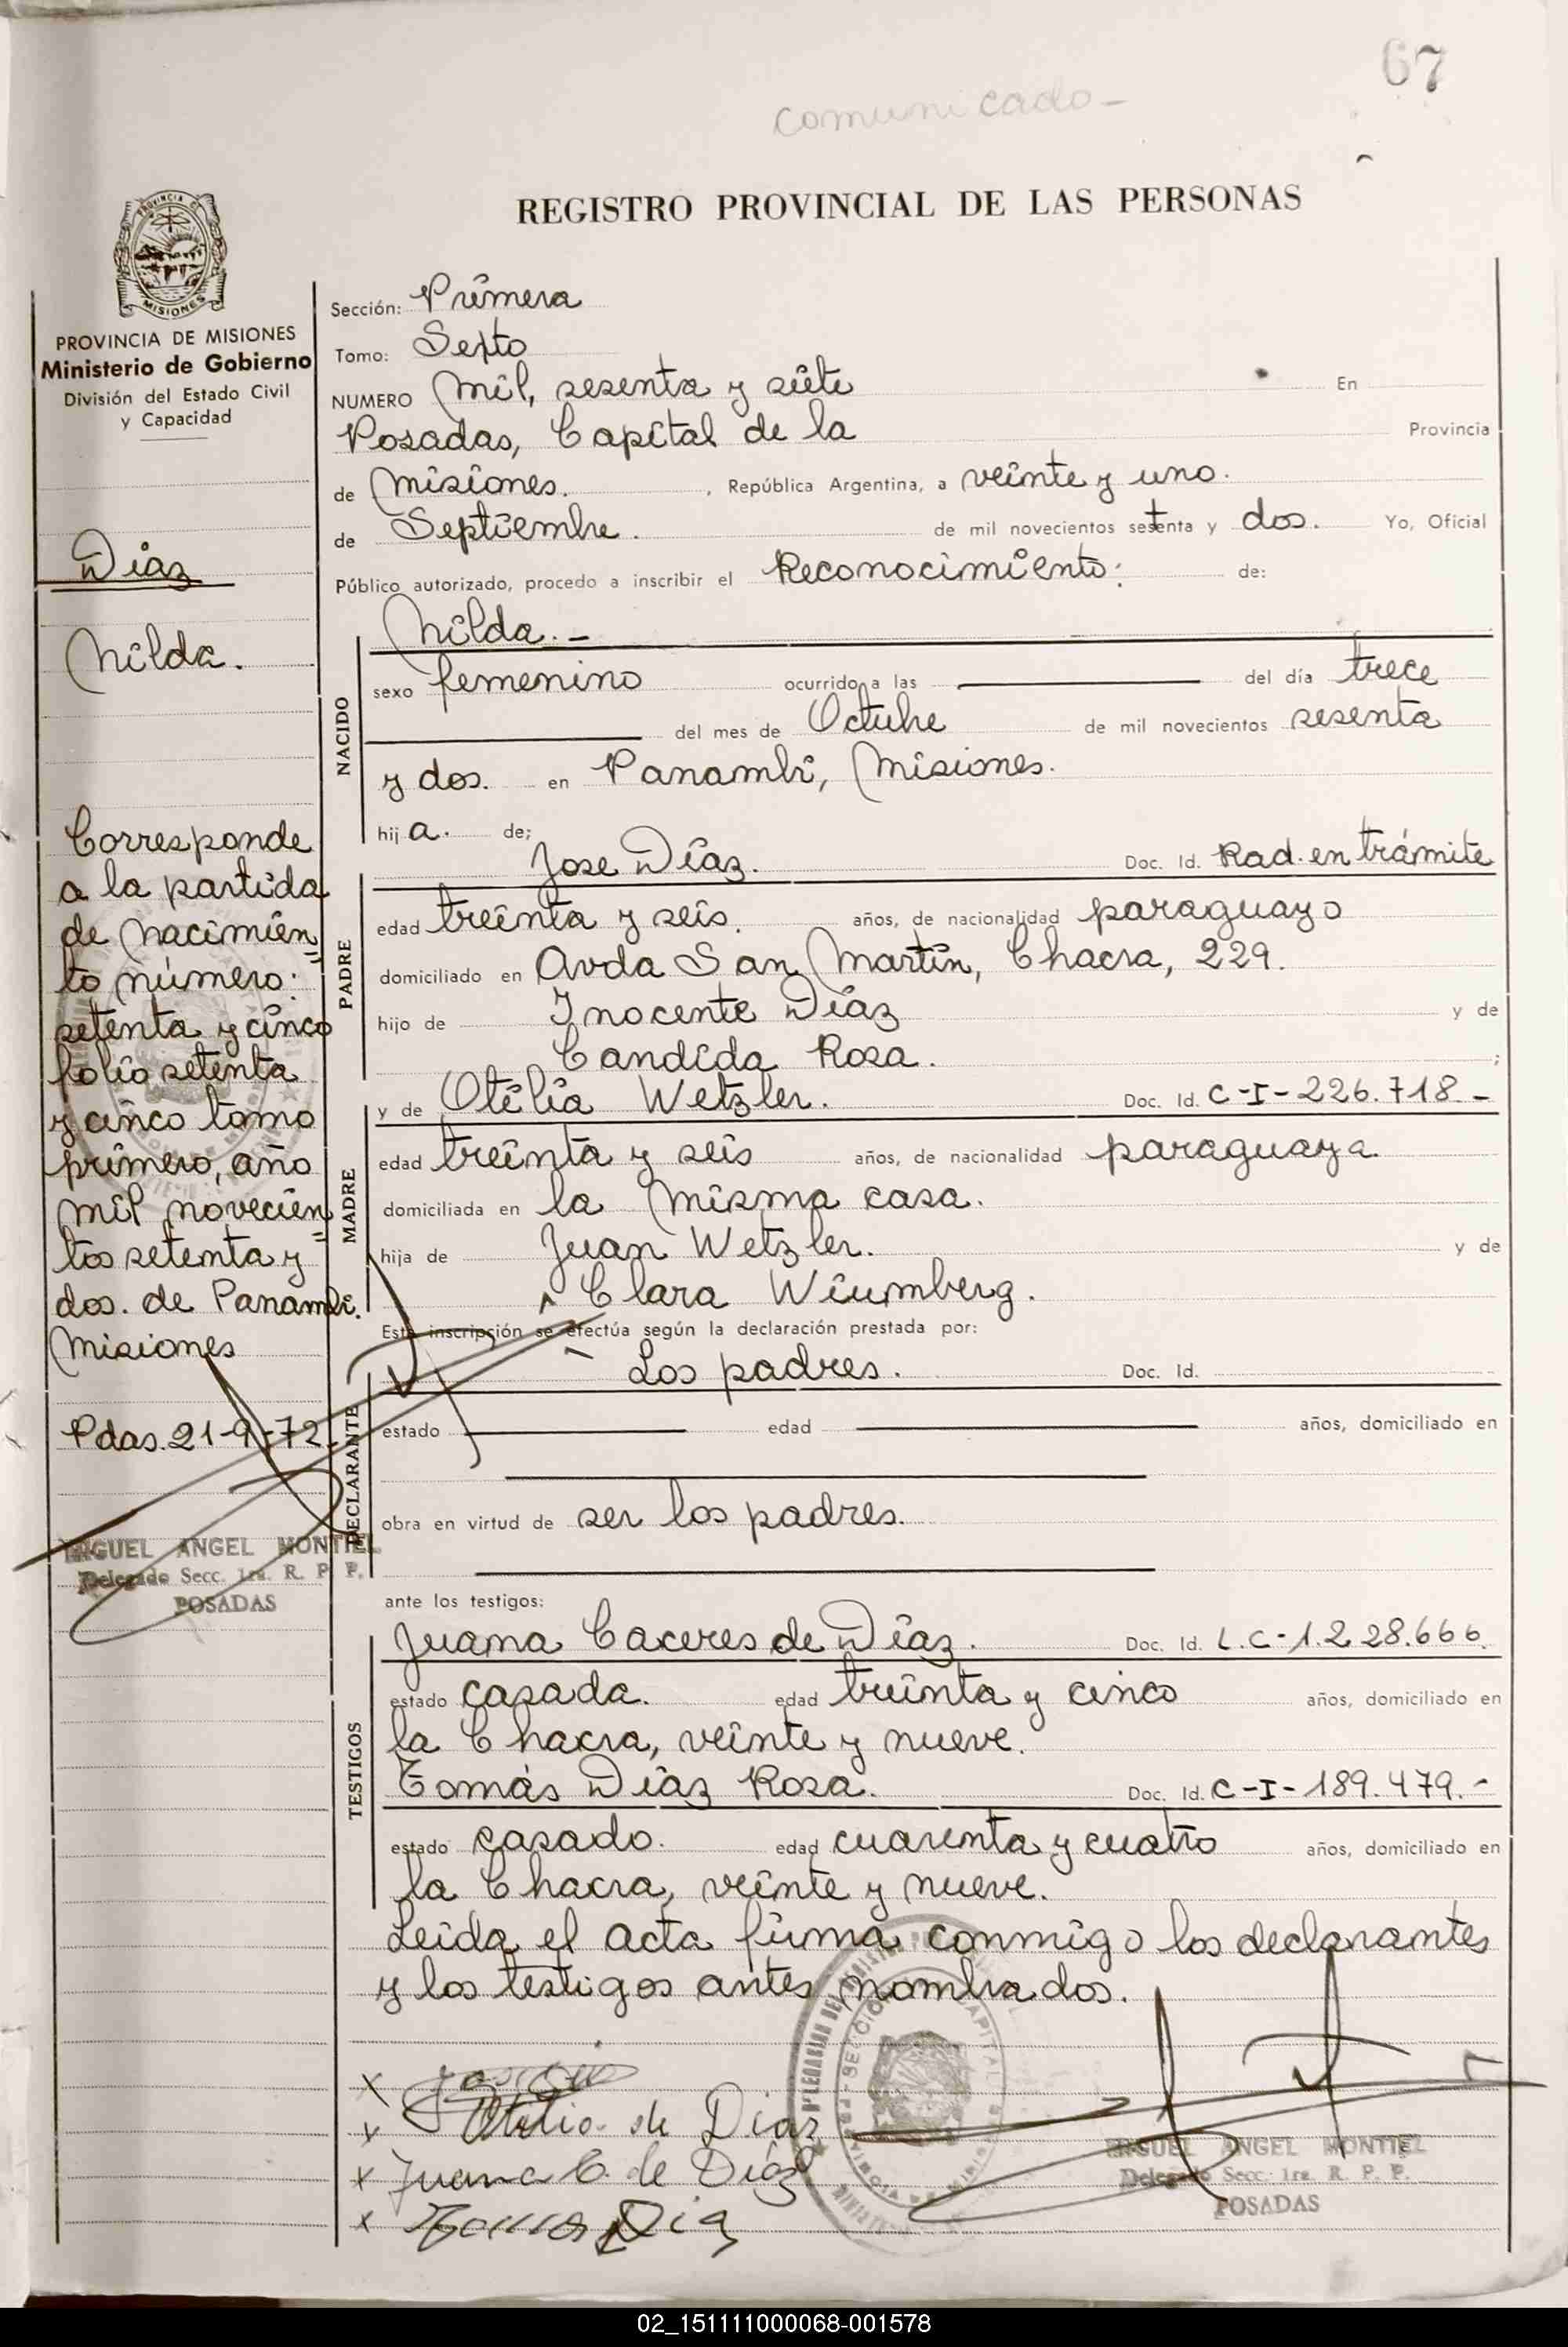 67
comunicado-
REGISTRO PROVINCIAL DE LAS PERSONAS
MISIONES
PROVINCIA DE MISIONES
Ministerio de Gobierno
División del Estado Civil
y Capacidad
Diaz
Nilda.
Corresponde
a la partida
de Nacimien
to número:
setenta y cinco
folio setenta
y cinco tomo
primero, año
mil novecien
tos setenta y
dos. de Panambí.
Misiones
Pdas. 21-9-72.
MIGUEL ANGEL MONTIEL
Delegado Secc. 1ra. R. P. P.
POSADAS
Sección: Primera
Tomo: Sexto
NUMERO Mil, sesenta y siete En
Posadas, Capital de la Provincia
de Misiones. , República Argentina, a veinte y uno.
de Septiembre. de mil novecientos setenta y dos. Yo, Oficial
Público autorizado, procedo a inscribir el Reconocimiento: de:
Nilda.-
NACIDO
sexo femenino ocurrido a las del día trece
del mes de Octubre de mil novecientos sesenta
y dos. en Panambí, Misiones.
hij a. de;
Jose Díaz. Doc. Id. Rad. en trámite
PADRE
edad treinta y seis. años, de nacionalidad paraguayo
domiciliado en Avda San Martín, Chacra, 229.
hijo de Inocente Díaz y de
Candida Rosa. ;
y de Otilia Wetzler. Doc. Id. C-I-226.718.-
MADRE
edad treinta y seis años, de nacionalidad paraguaya
domiciliada en la misma casa.
hija de Juan Wetzler. y de
Clara Wiumberg.
Esta inscripción se efectúa según la declaración prestada por:
Los padres. Doc. Id.
DECLARANTE
estado edad años, domiciliado en
obra en virtud de ser los padres.
ante los testigos:
Juana Caceres de Díaz. Doc. Id. L.C-1.228.666.
TESTIGOS
estado casada. edad treinta y cinco años, domiciliado en
la Chacra, veinte y nueve.
Tomás Díaz Rosa. Doc. Id. C-I-189.479.-
estado casado. edad cuarenta y cuatro años, domiciliado en
la Chacra, veinte y nueve.
Leida el acta firma conmigo los declarantes
y los testigos antes nombrados.
Otilia de Diaz
Juana C. de Díaz
MIGUEL ANGEL MONTIEL
Delegado Secc. 1ra. R. P. P.
POSADAS
02_151111000068-001578